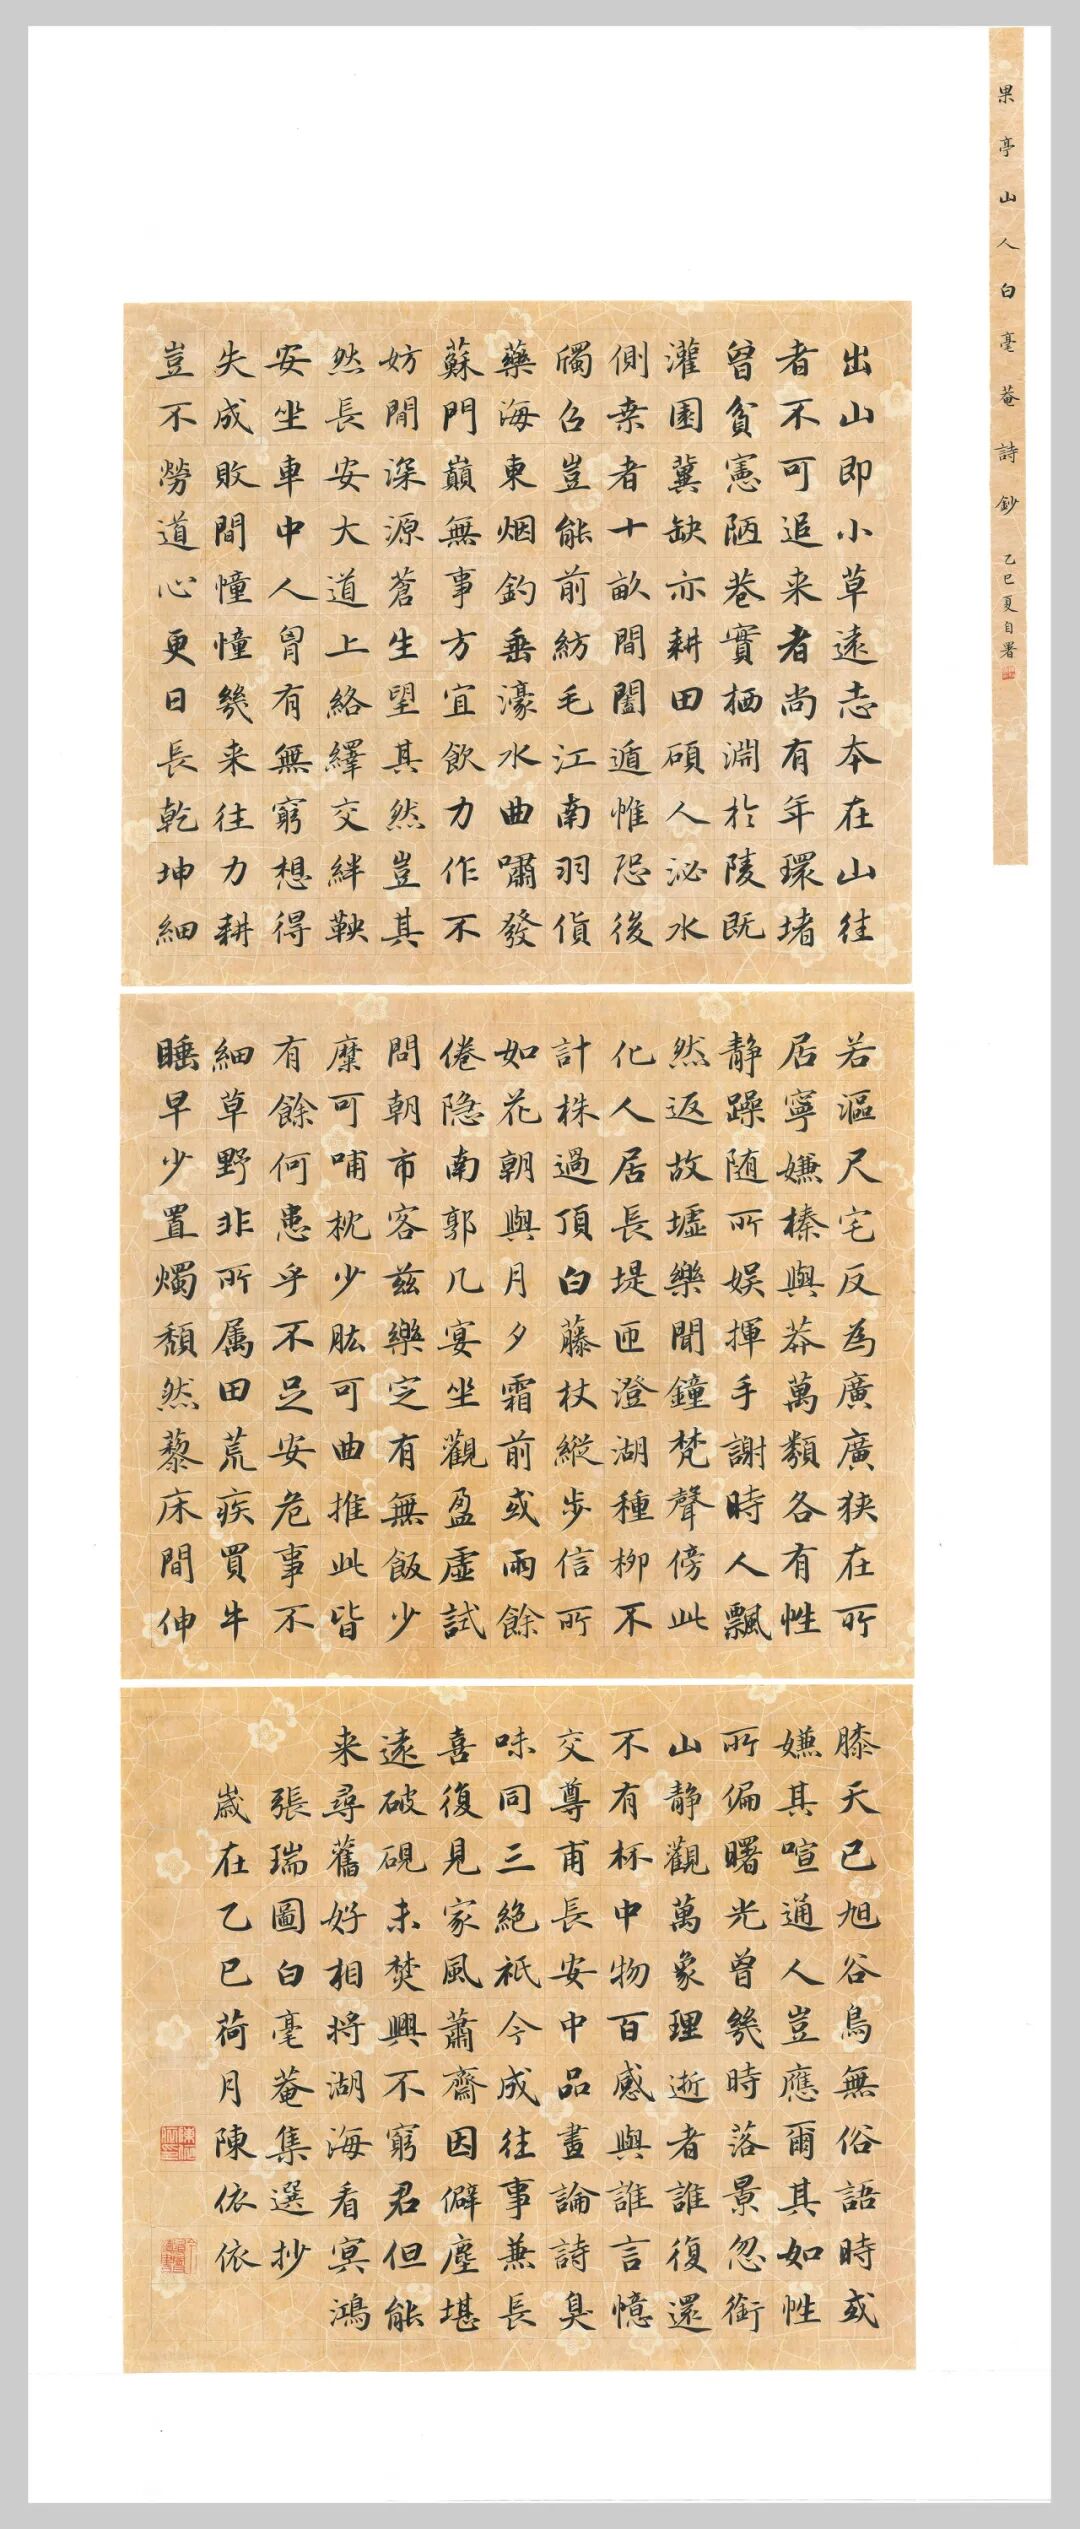 果亭山人白毫菴詩鈔 乙巳夏自署
出山即小草遠志本在山往
者不可追来者尚有年環堵
曾貧憲陋巷實栖淵於陵既
灌園冀缺亦耕田碩人泌水
側桒者十畝間闔遁惟恐後
燭名豈能前紡毛江南羽貨
藥海東烟釣垂濠水曲嘯發
蘇門巔無事方宜飲力作不
妨閒深源蒼生望其然豈其
然長安大道上絡繹交絆鞅
安坐車中人胷有無窮想得
失成敗間憧憧幾来往力耕
豈不勞道心更日長乾坤細
若漚尺宅反為廣廣狹在所
居寧嫌榛與莽萬類各有性
静躁随所娱揮手謝時人飄
然返故墟樂聞鐘梵聲傍此
化人居長堤匝澄湖種柳不
計株過頂白藤杖縱步信所
如花朝與月夕霜前或雨餘
倦隐南郭几宴坐觀盈虚試
問朝市客兹樂定有無飯少
糜可哺枕少肱可曲推此皆
有餘何患乎不足安危事不
細草野非所属田荒疾買牛
睡早少置燭頹然藜床間伸
膝天已旭谷鳥無俗語時或
嫌其喧通人豈應爾其如性
所偏曙光曾幾時落景忽銜
山静觀萬象理逝者誰復還
不有杯中物百感與誰言憶
交尊甫長安中品畫論詩臭
味同三絶祇今成往事兼長
喜復見家風蕭齋因僻塵堪
遠破硯未焚興不窮君但能
来尋舊好相将湖海看㝠鴻
張瑞圖白毫菴集選抄
歲在乙巳荷月陳依依